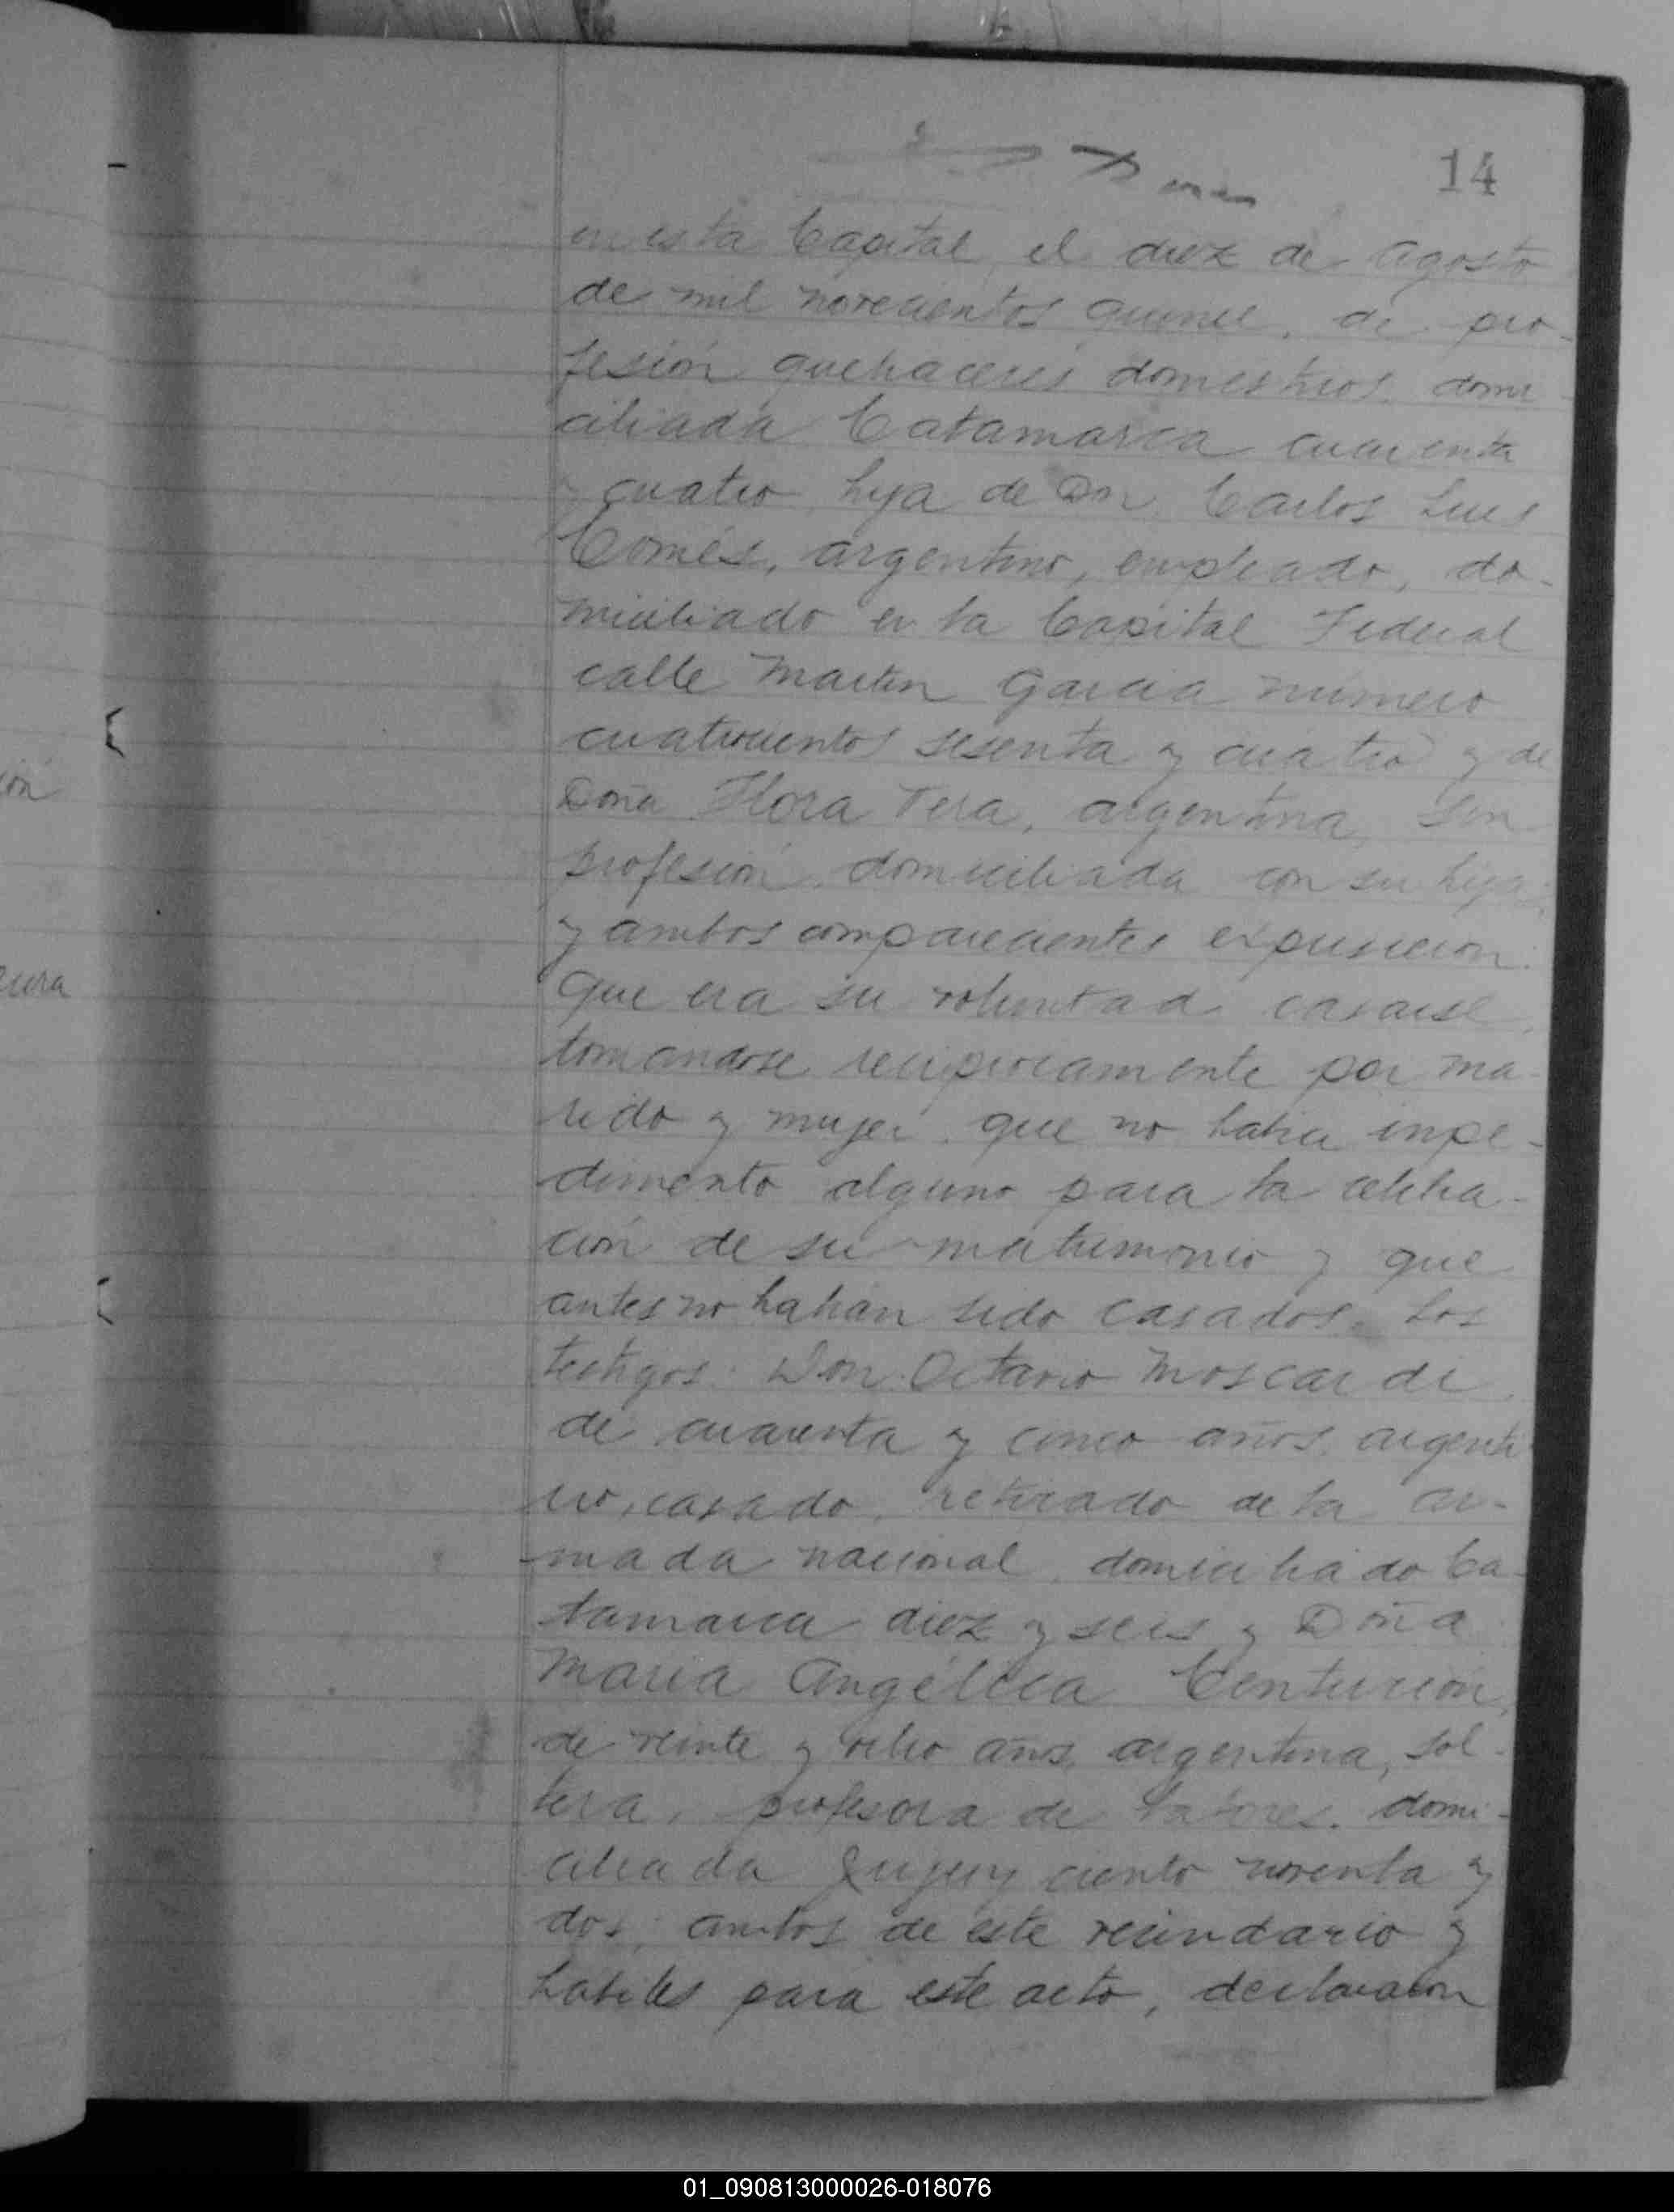 14
en esta Capital el diez de agosto
de mil novecientos quince, de pro-
fesión quehaceres domesticos, domi
ciliada Catamarca cuarenta
y cuatro, hija de Don Carlos Luis
Comés, argentino, empleado, do-
miciliado en la Capital Federal
calle Martin Garcia número
cuatrocientos sesenta y cuatro y de
Doña Flora Vera, argentina, sin
profesión, domiciliada con su hija,
y ambos comparecientes expusieron:
Que era su voluntad casarse,
tomandose reciprocamente por ma-
rido y mujer, que no habia impe-
dimento alguno para la celebra-
ción de su matrimonio y que
antes no habian sido casados. Los
testigos: Don Octavio Moscardi,
de cuarenta y cinco años, argenti
no, casado, retirado de la ar-
mada nacional, domiciliado Ca-
tamarca diez y seis y Doña
Maria Angélica Centurión,
de veinte y ocho años, argentina, sol-
tera, profesora de labores, domi-
ciliada Jujuy ciento noventa y
dos, ambos de este vecindario y
habiles para este acto, declararon
ión
01_090813000026-018076